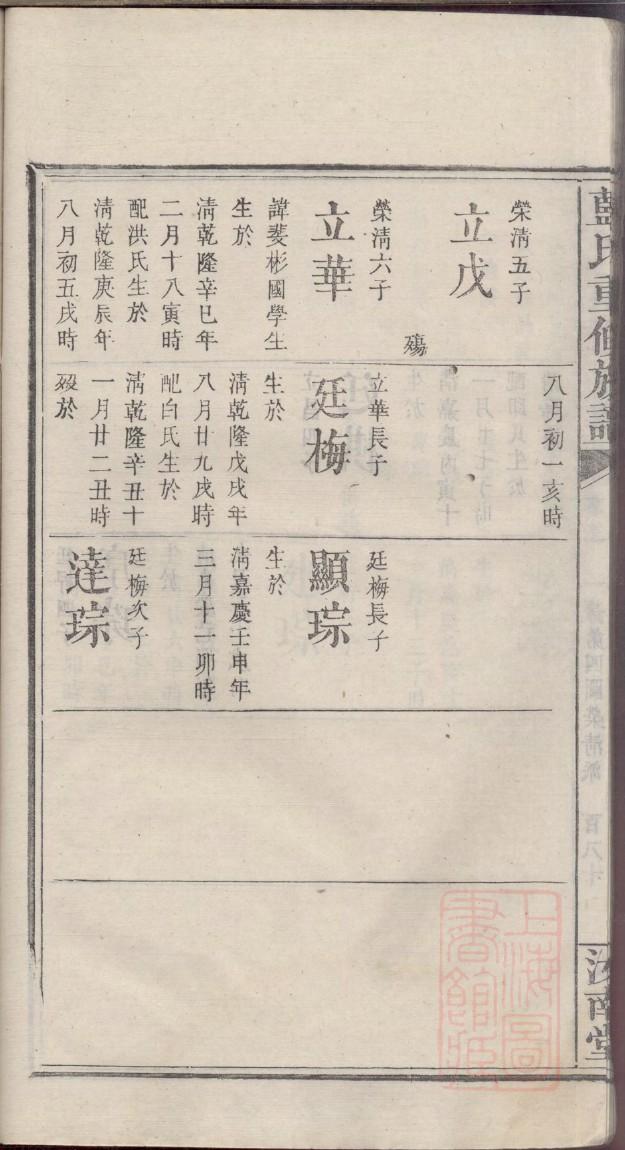 藍氏重修族譜
汝南堂
榮清五子
立戊
殤
榮清六子
立華
諱斐彬國學生
生於
清乾隆辛巳年
二月十八寅時
配洪氏生於
清乾隆庚辰年
八月初五戌時
八月初一亥時
立華長子
廷梅
生於
清乾隆戊戌年
八月廿九戌時
配白氏生於
清乾隆辛丑十
一月廿二丑時
歿於
廷梅長子
顯琮
生於
清嘉慶壬申年
三月十一卯時
廷梅次子
達琮
上海圖
書館藏